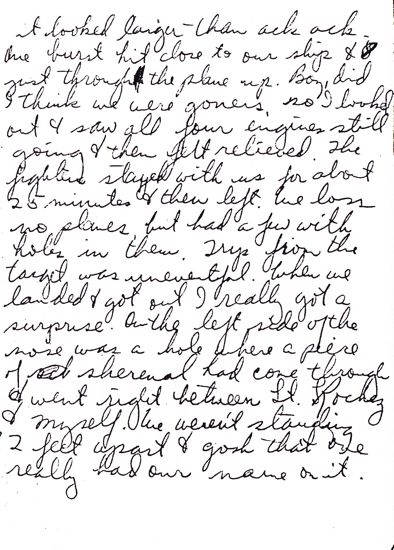 it looked larger than ack ack.
One burst hit close to our ship &
just through the plane up. Boy, did
I think we were goners, so I looked
out & saw all four engines still
going & then felt relieved. The
fighters stayed with us for about
25 minutes & then left. We loss
no planes, but had a few with
holes in them. Trip from the
target was uneventful. When we
landed & got out I really got a
surprise. On the left side of the
nose was a hole where a piece
of sherenal had come through
& went right between Lt.
& myself. We weren't standing
2 feet apart & gosh that one
really had our name on it.